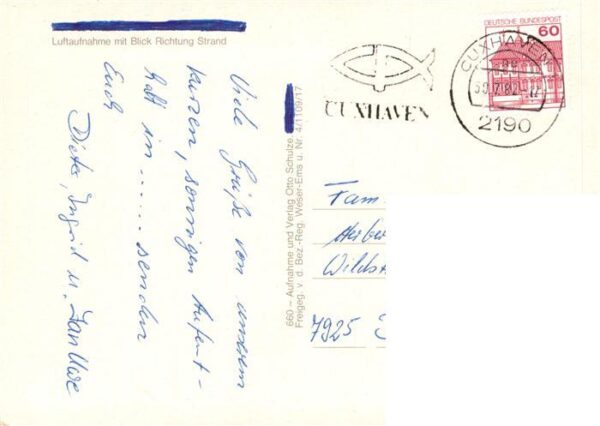 Luftaufnahme mit Blick Richtung Strand
Viele Grüße von unserem
kurzen, sonnigen Aufent-
halt in ...... senden
Euch
Dieter, Ingrid u. Jan Uwe
660 – Aufnahme und Verlag Otto Schulze
Freigeg. v. d. Bez.-Reg. Weser-Ems u. Nr. 4/1109/17
CUXHAVEN
DEUTSCHE BUNDESPOST
60
CUXHAVEN
2190
Fam
Herber
Wilds
7925